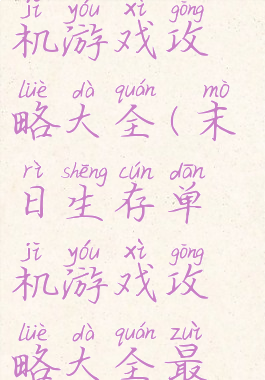 jī yóu xì gōng
机游戏攻
lüè dà quán mò
略大全(末
rì shēng cún dān
日生存单
jī yóu xì gōng
机游戏攻
lüè dà quán zuì
略大全最